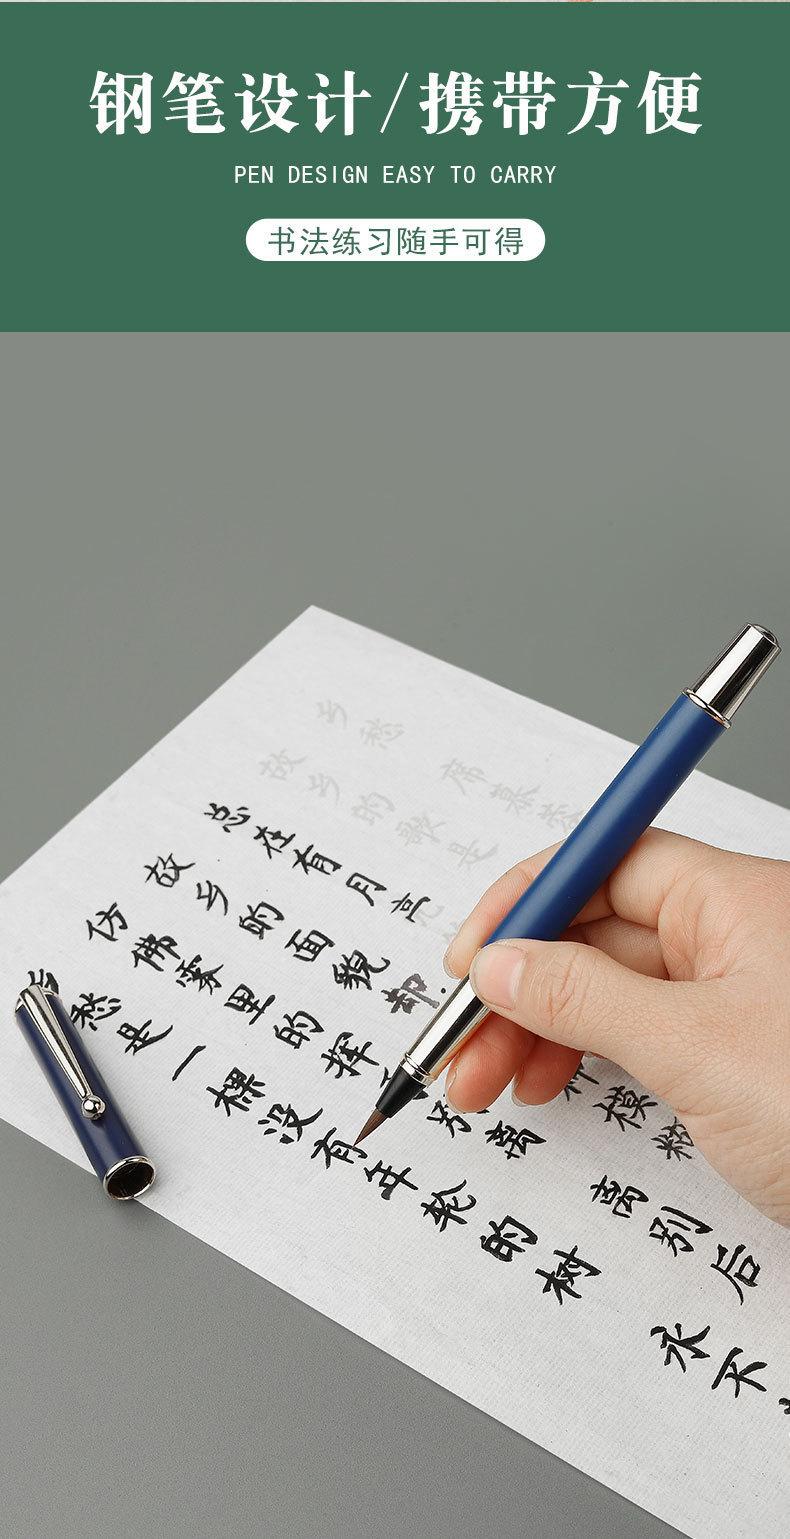 钢笔设计/携带方便
PEN DESIGN EASY TO CARRY
书法练习随手可得
乡愁 席慕容
故乡的歌是
总在有月亮
故乡的面貌却
仿佛雾里的挥
别离
模糊
离别后
乡愁是一棵没有年轮的树
永不